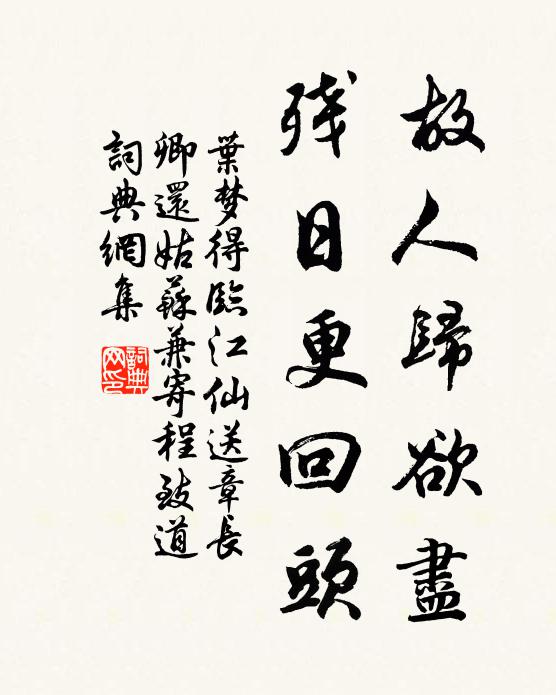 故人歸欲盡
残日更回頭
葉梦得臨江仙送章長
卿還姑蘇兼寄程致道
詞典網集
詞典
网印